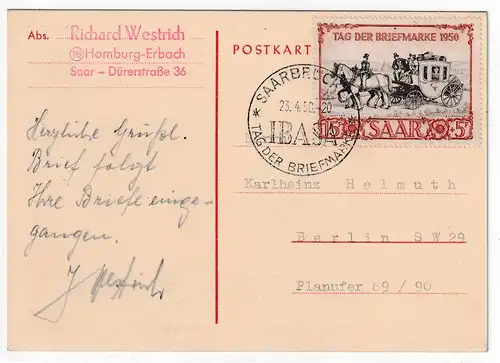 Abs.
Richard Westrich
(18) Homburg-Erbach
Saar – Dürerstraße 36
Herzliche Grüße.
Brief folgt
Ihre Briefe einge-
gangen.
POSTKARTE
TAG DER BRIEFMARKE 1950
15 SAAR 5
SAARBRÜCKEN
23.4.50.-20
IBASA
TAG DER BRIEFMARKE
Karlheinz Helmuth
Berlin SW 29
Planufer 89 / 90